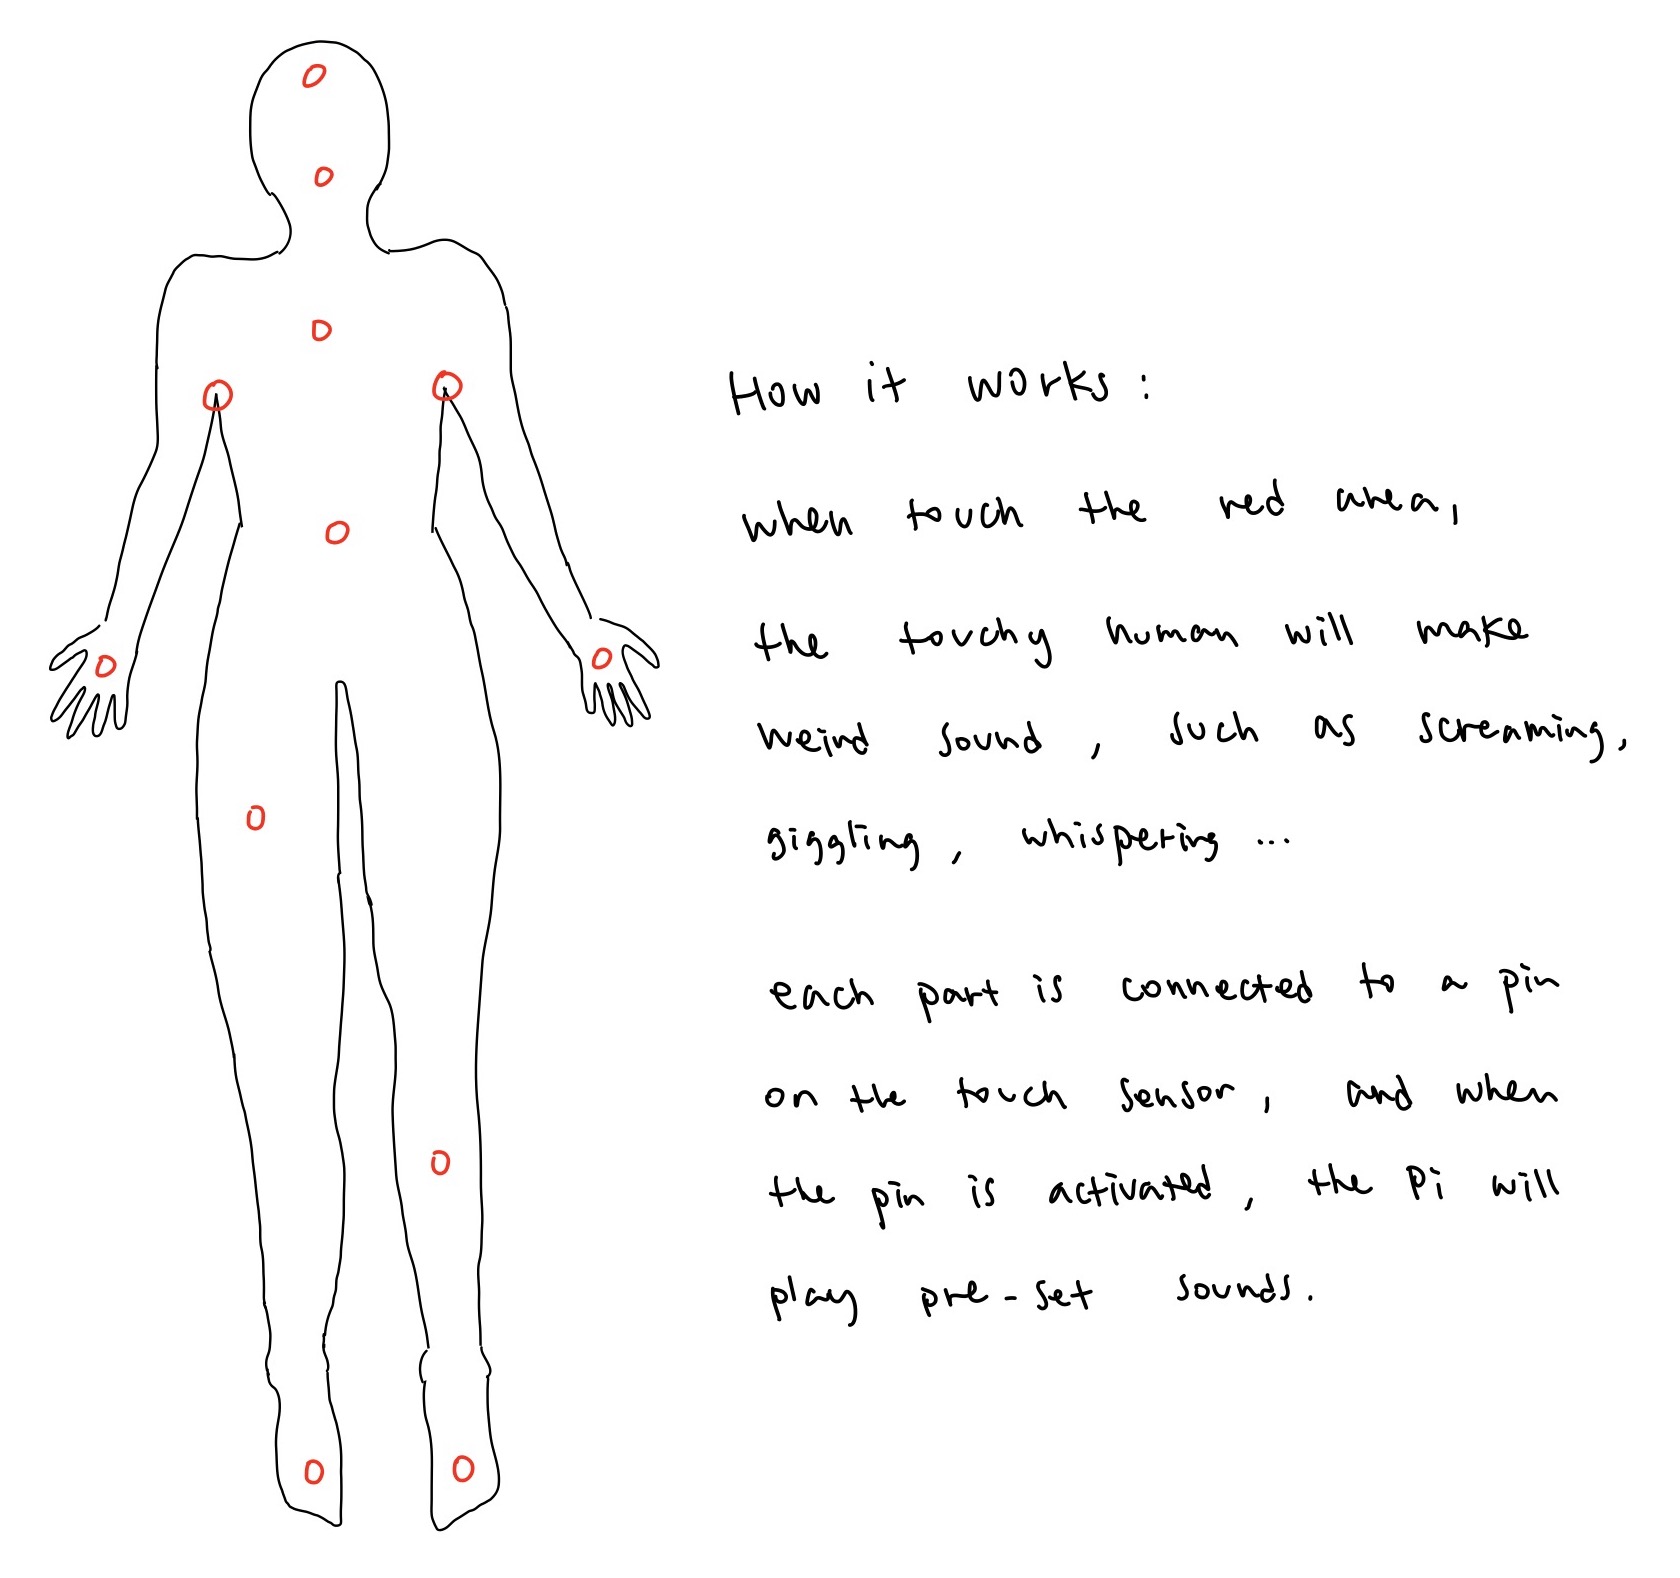 How it works:
when touch the red area,
the touchy human will make
weird sound, such as screaming,
giggling, whispering ...
each part is connected to a pin
on the touch sensor, and when
the pin is activated, the Pi will
play pre-set sounds.